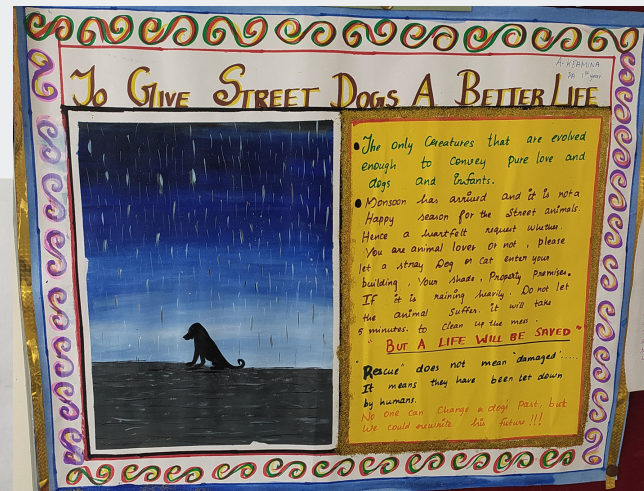 A. KEAMINA
PA 1st year
To Give Street Dogs A Better Life
The only Creatures that are evolved
enough to Convey pure love and
dogs and infants.
Monsoon has arrived and it is not a
Happy season for the street animals.
Hence a heartfelt request whether
You are animal lover or not, please
let a stray Dog or Cat enter your
building, Your shade, Property Premises.
If it is raining heavily. Do not let
the animal suffer. it will take
5 minutes. to clean up the mess.
"BUT A LIFE WILL BE SAVED"
"Rescue" does not mean "damaged".....
It means they have been let down
by humans.
No one can change a dog's past, but
We could rewrite his future!!!